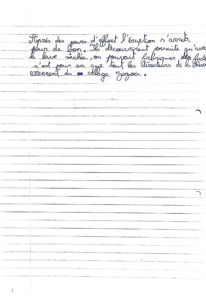 Après des jours d'effort l'éruption s'arrêta
pour de bon. Ils découvrirent ensuite qu'avec
la lave séchée, on pourrait fabriquer des
c'est pour ça que tout les directeurs de la
du village